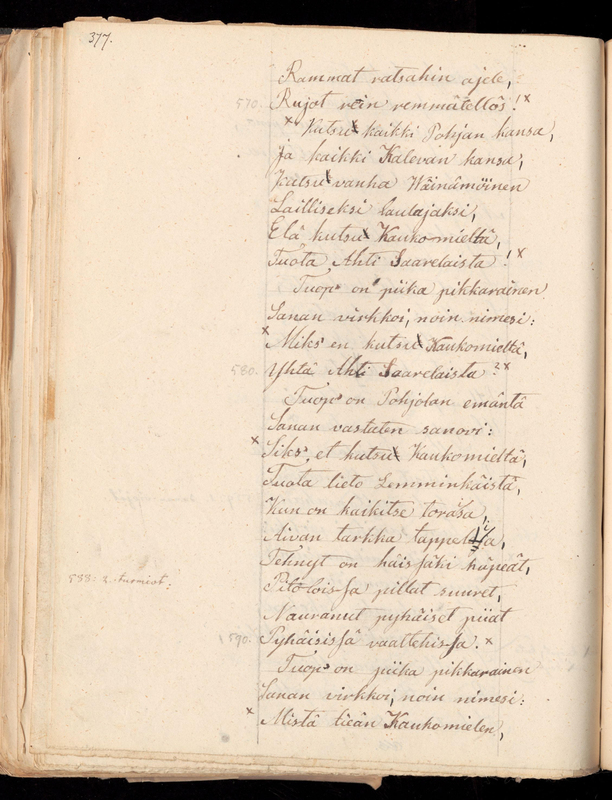 377.
Rammat ratsahin ajele,
570. Rujot rein remmätellös! x
x Kutsu kaikki Pohjan kansa,
Ja kaikki Kalevan kansa,
Kutsu vanha Wäinämöinen
Lailliseksi laulajaksi,
Elä kutsu Kaukomieltä,
Tuota Ahti Saarelaista! x
Tuop' on piika pikkarainen
Sanan virkkoi, noin nimesi:
x Miks' en kutsu Kaukomieltä,
580. Yhtä Ahti Saarelaista? x
Tuop' on Pohjolan emäntä
Sanan vastaten sanovi:
x Siks' et kutsu Kaukomieltä,
Tuota lieto Lemminkäistä,
Kun on kaikitse torasa,
Aivan tarkka tappelija,
Tehnyt on häissäki häpeät,
588: 2. turmiot: Pitoloissa pillat suuret,
Nauranut pyhäiset piiat
1590. Pyhäisissä vaattehissa. x
Tuop' on piika pikkarainen
Sanan virkkoi, noin nimesi:
x Mistä tieän Kaukomielen,